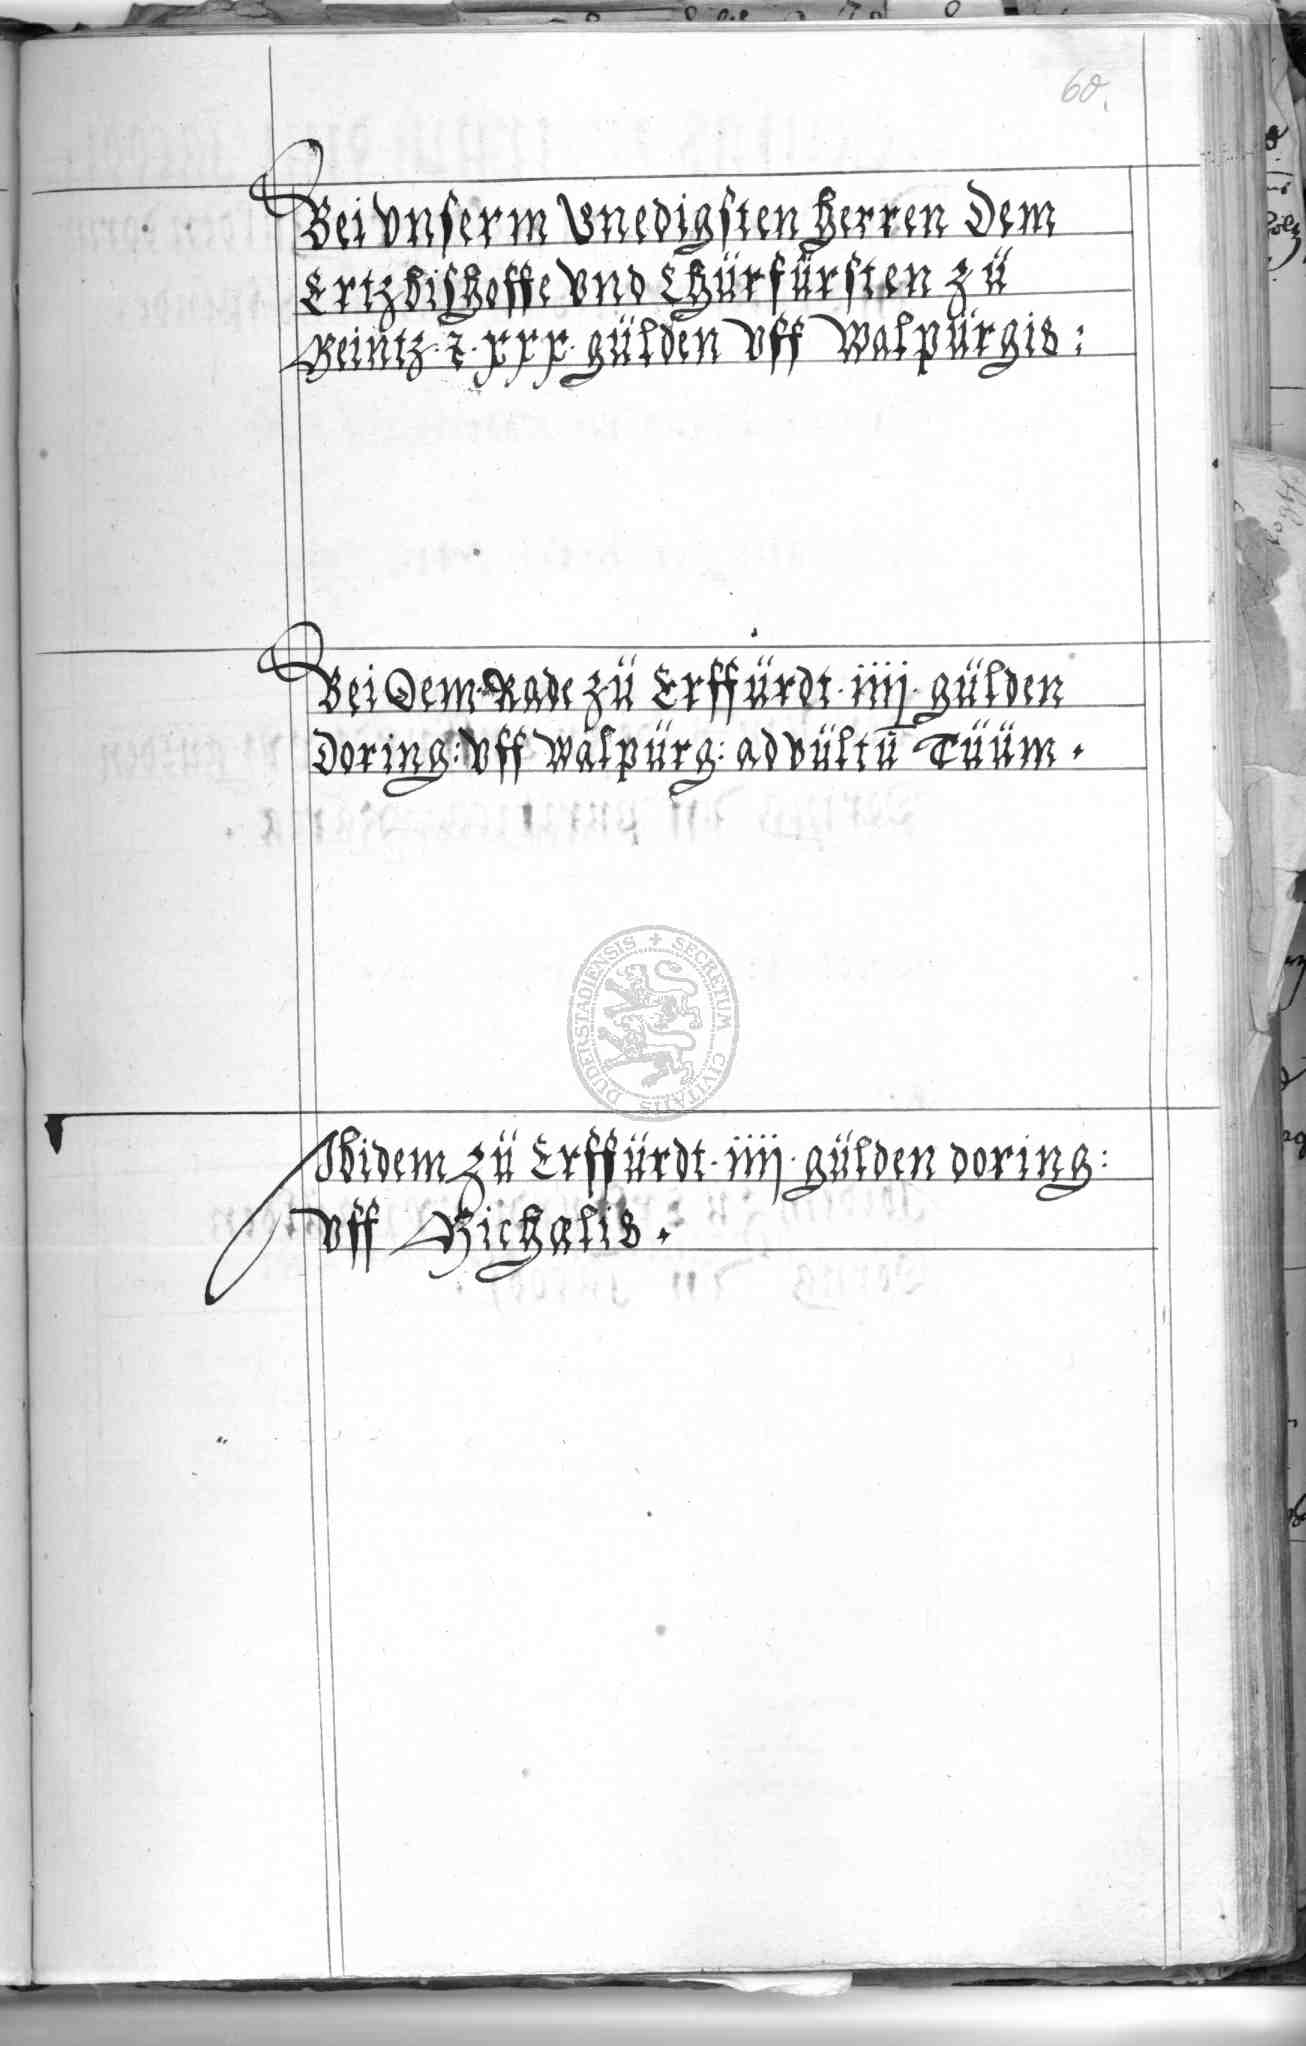 60.
Bei vnserm Gnedigsten herren Dem
Ertzbishoffe vnd Chürfürsten zü
Meintz · z · xxx · gülden vff Walpürgis :
Bei Dem Rade zü Erffürdt · iiij · gülden
Doring : vff Walpürg : ad vültū Tüüm .
Ibidem zü Erffürdt · iiij · gülden doring :
vff Michalis .
SECRETUM CIVITATIS DUDERSTADIENSIS